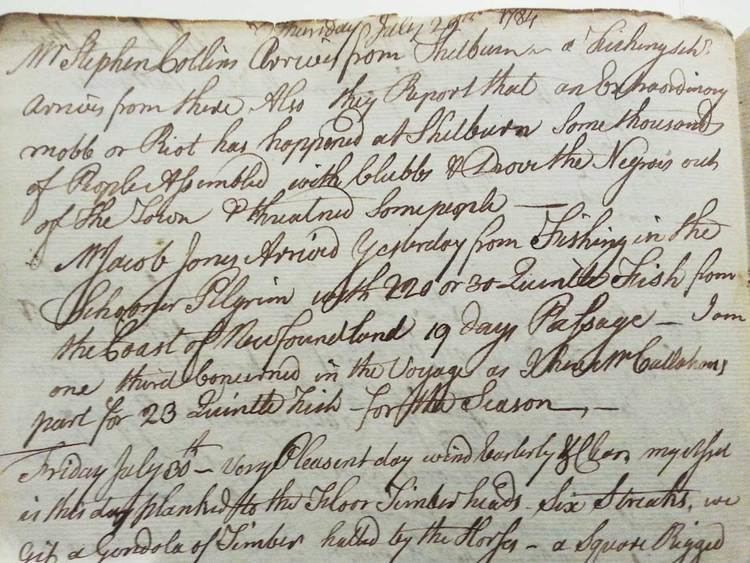 Thursday July 29th 1784
Mr Stephen Collins Arrives from Shelburn – a Fishing Schr
arrives from there Also they Report that an Extraordinary
mobb or Riot has happened at Shelburn Some thousands
of People Assembled with Clubbs & Drove the Negroes out
of the Town & threatned Some people —
Mr Jacob Jones Arrived Yesterday from Fishing in the
Schooner Pilgrim with 220 or 30 Quintle Fish from
the Coast of Newfoundland 19 days Passage – I am
one third Concerned in the Voyage as I have Mr Callahans
part for 23 Quintle Fish – for the Season – –
Friday July 30th – Very Pleasent day wind Easterly & Clear my
is this day planked to the Floor Timber heads Six Streaks, we
Git a Gondola of Timber haled by the Horses – a Square Rigged